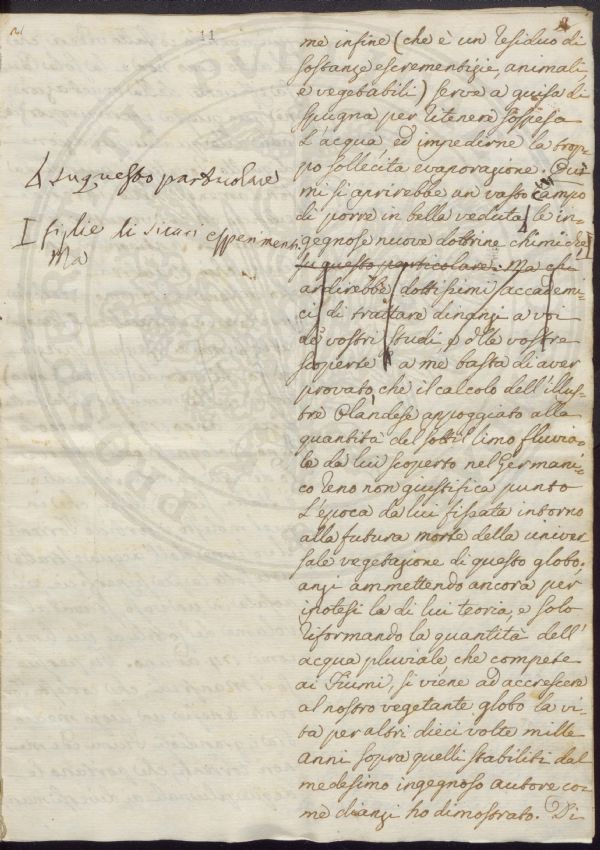 11
me infine (che è un residuo di
sostanze escrementizie, animali,
e vegetabili) serve a guisa di
spugna per ritenere sospesa
l'acqua ed impedirne la trop-
po sollecita evaporazione. Qui
mi si aprirebbe un vasto campo
di porre in bella veduta le in-
gegnose nuove dottrine chimiche
su questo particolare. Ma chi
ardirebbe dottissimi accademi-
ci di trattare dinanzi a voi
de vostri studi, e delle vostre
scoperte a me basta di aver
provato, che il calcolo dell'illus-
tre Olandese appoggiato alla
quantità del sottil limo fluvia-
le da lui scoperto nel Germani-
co Reno non giustifica punto
l'epoca da lui fissata intorno
alla futura morte della univer
sale vegetazione di questo globo.
anzi ammettendo ancora per
ipotesi la di lui teoria, e solo
riformando la quantità dell'
acqua pluviale, che compete
ai Fiumi, si viene ad accrescere
al nostro vegetante globo la vi-
ta per altri dieci volte mille
anni sopra quelli stabiliti dal
medesimo ingegnoso autore co-
me dianzi ho dimostrato. Di
su questo particolare
figlie di sicuri esperimenti.
Ma